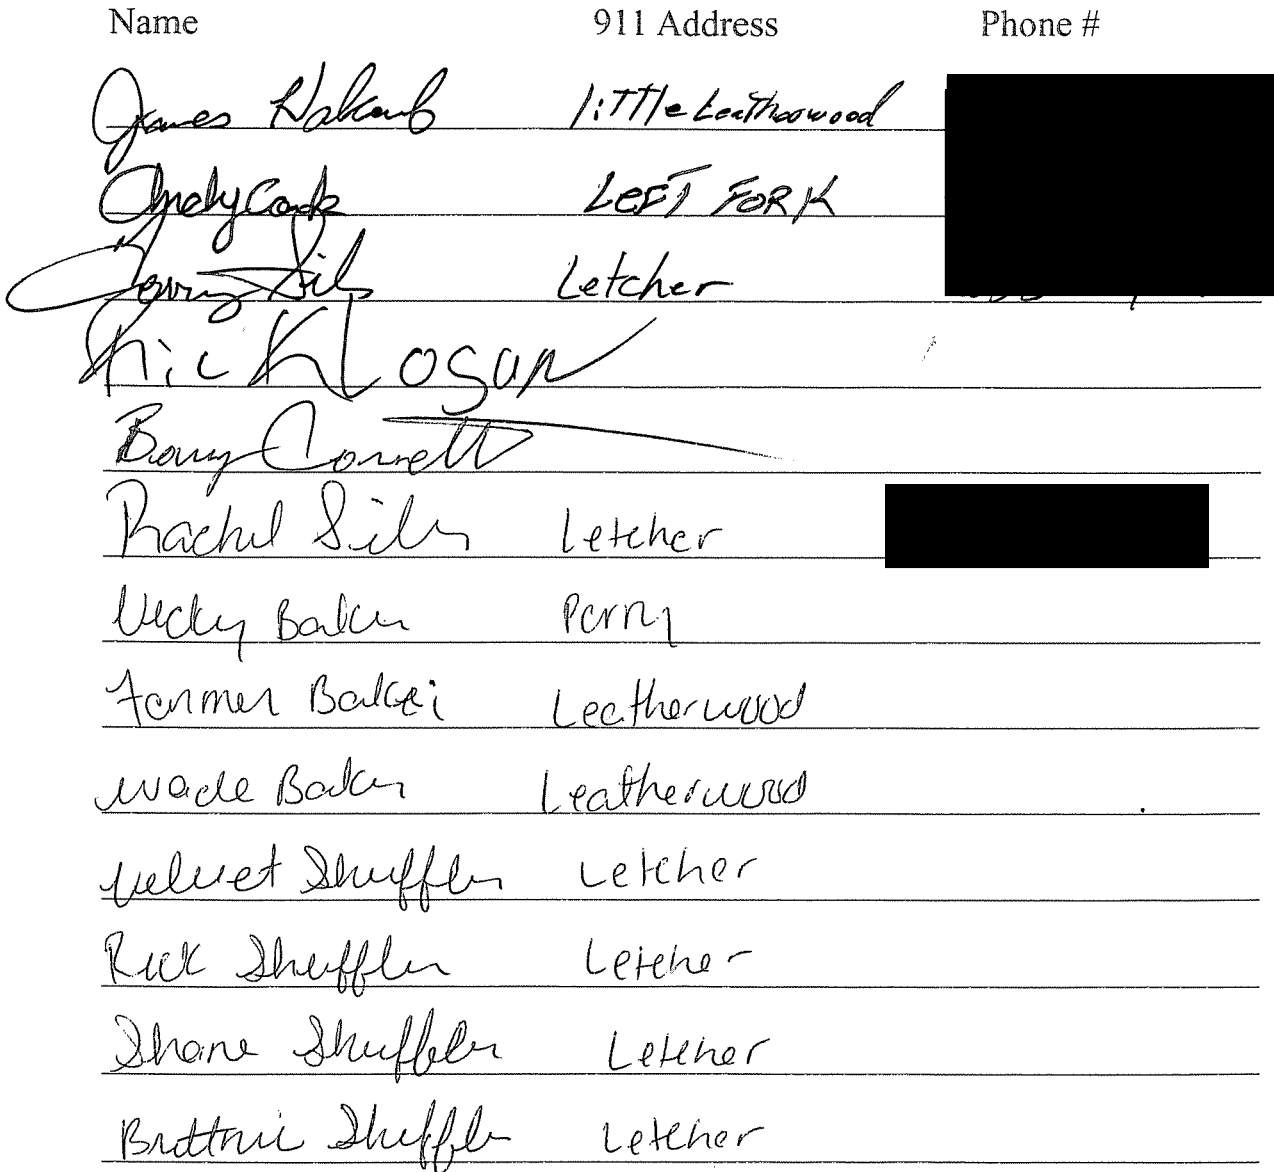 Name 911 Address Phone #
James Halcomb little Leatherwood
Andy Cook LEFT FORK
Letcher
Rick Logan
Barry Cornett
Rachel Letcher
Vicky Baker Perry
Farmer Baker Leatherwood
Wade Baker Leatherwood
Velvet Shuffler Letcher
Rick Shuffler Letcher
Shane Shuffler Letcher
Brittnie Shuffler Letcher